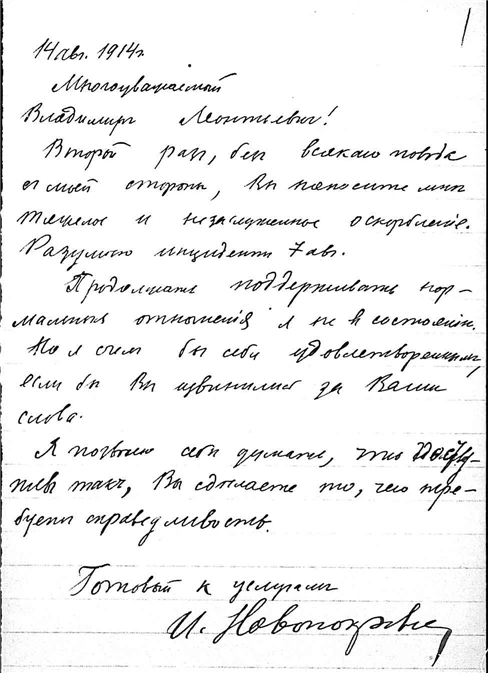 14 авг. 1914 г.
Многоуважаемый
Владимиръ Леонтьевич!
Второй раз, без всякаго повода
с моей стороны, Вы наносите мнѣ
тяжелое и незаслуженное оскорбленіе.
Разумѣю инцидентъ 7 авг.
Продолжать поддерживать нор-
мальныя отношенія я не в состояніи.
Но я счел бы себя удовлетвореннымъ,
если бы Вы извинились за Ваши
слова.
Я позволю себѣ думать, что посту-
пивъ такъ, Вы сдѣлаете то, чего тре-
буетъ справедливость.
Готовый к услугамъ
И. Новопокровскій